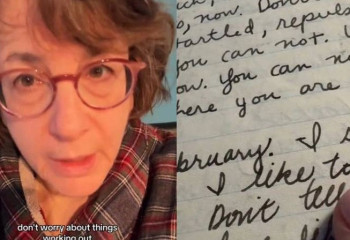 don't worry about things
working out
, now. Don't
startled, repuls
you can not.
ow. You can no
here you are
bruary. I
I like to
Don't tell